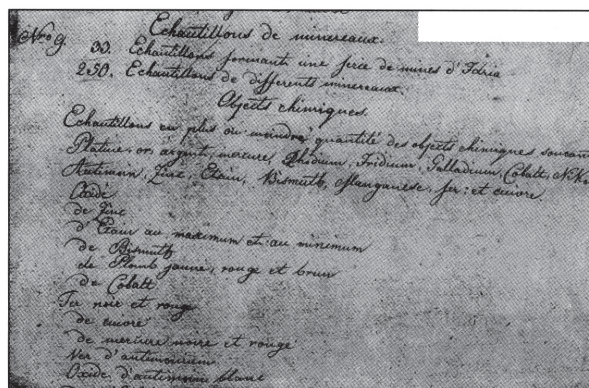 Echantillons de minereaux.
Nro 9. 33. Echantillons formants une serie de mines d'Idria
250. Echantillons de differents minereaux.
Objets chimiques
Echantillons en plus ou moindre quantité des objets chimiques
Platine, or, argent, mercure, Rhodium, Iridium, Palladium, Cobalt,
Antimoin, Zinc, Etain, Bismuth, Manganese, fer: et cuivre.
Oxide
de Zinc
d'Etain au maximum et au minimum
de Bismuth
de Plomb jaune, rouge et brun
de Cobalt
Fer noir et rouge
de cuivre
de mercure noire et rouge
Ver d'antimonium
Oxide d'antimoine blanc